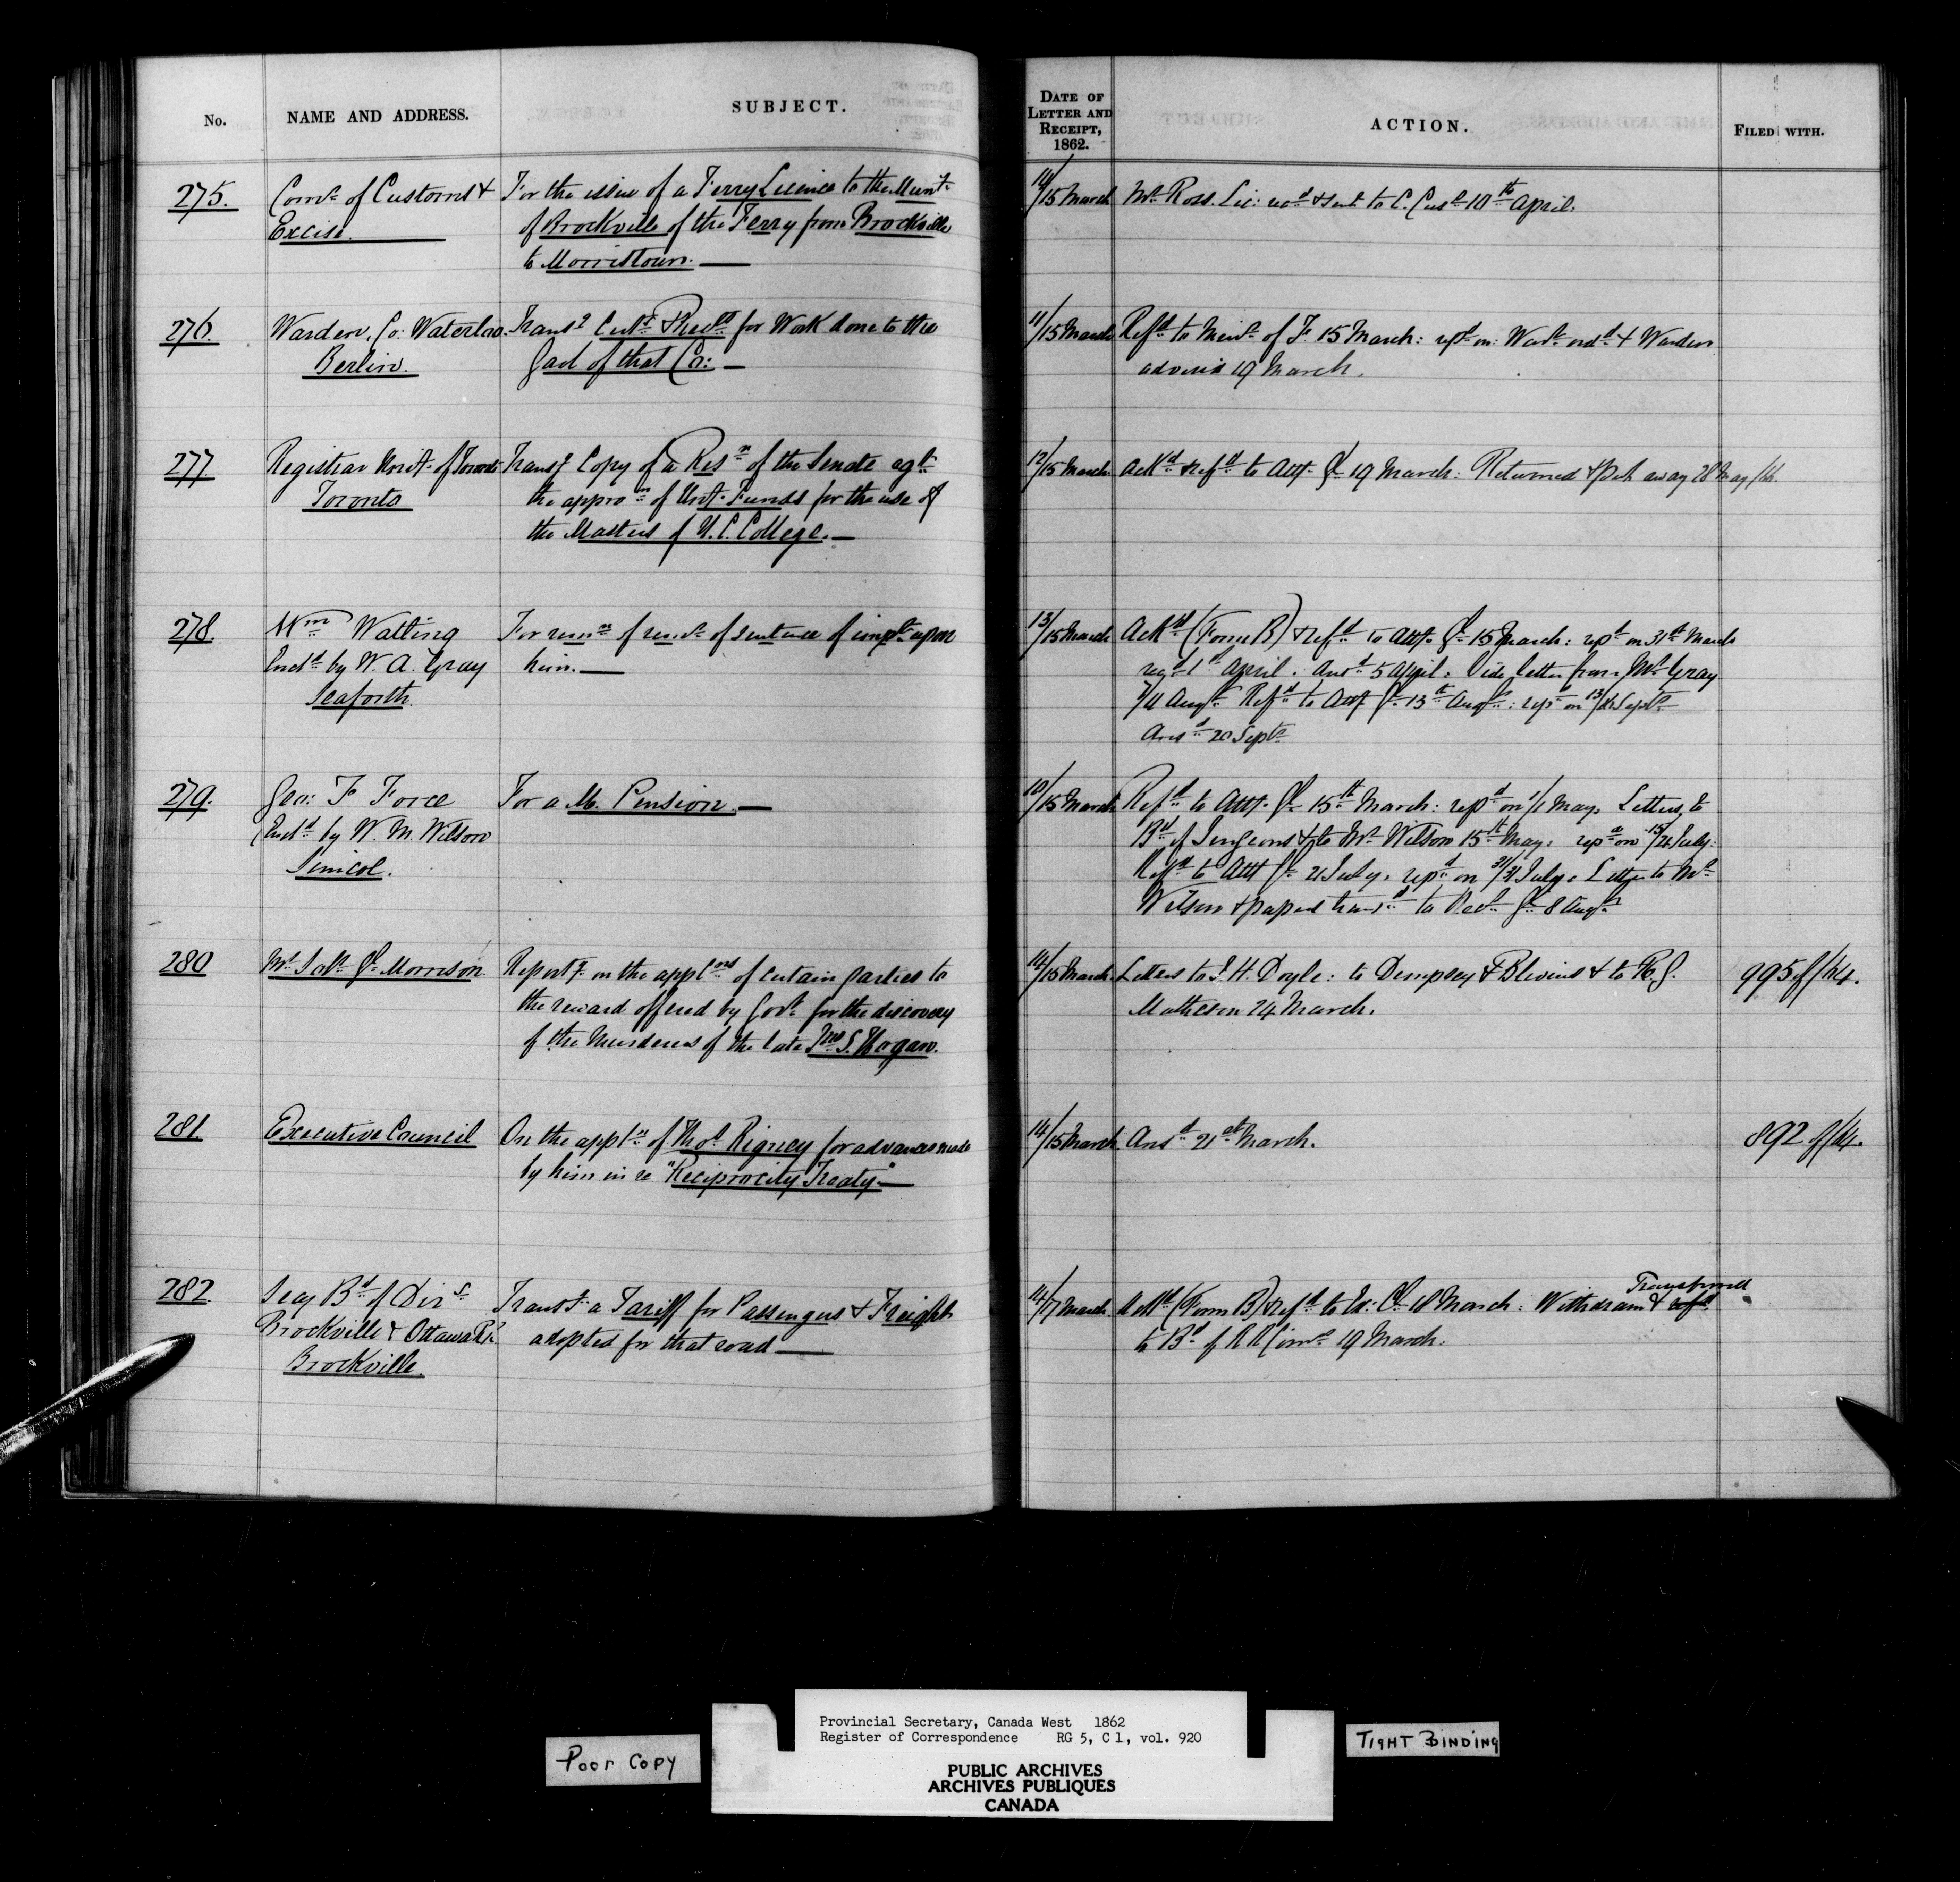 No.
NAME AND ADDRESS.
SUBJECT.
DATE OF LETTER AND RECEIPT, 1862.
ACTION.
FILED WITH.
275.
Comr of Customs &
Excise.
For the issue of a Ferry Licence to the Munty
of Brockville of the Ferry from Brockville
to Morristown. —
14/15 March
Mr Ross. Lic: recd & sent to C. Custs 10th April.
276.
Warden, Co: Waterloo
Berlin.
Transg Certs & Recpts for Work done to the
Gaol of that Co: —
11/15 March
Refd to Minr of F. 15 March: repd on: Wart ordd & Warden
advised 19 March.
277.
Registrar Univt of Toronto
Toronto
Transg Copy of a Resn of the Senate agt
the appron of Univt Funds for the use of
the Masters of U. C. College. —
12/15 March
Ackd & refd to Atty Gl 19 March: Returned & put away 28 May /64.
278
Wm Watling
Encd by W. A. Gray
Seaforth.
For remn of remr of sentence of impt upon
him. —
13/15 March
Ackd (Form B) & refd to Atty Gl 15 March: repd on 31st March
recd 1st April. Ansd 5 April. Vide letter from Mr Gray
7/11 Augt Refd to Atty Gl 13th Augt: repd on 13/ Septr
Ansd 20 Septr
279.
Geo: F Force
Encd by W. M. Wilson
Simcoe.
For a M. Pension. —
10/15 March
Refd to Atty Gl 15th March: repd on 1/1 May. Letters to
Bd of Surgeons & to Mr Wilson 15th May. repd on 15/21 July:
Refd to Atty Gl 21 July. repd on 31/31 July. Letter to Mr
Wilson & papers transd to Recr Gl 8 Augt
280
Mr Solr Gl Morrison.
Report g on the appcns of certain parties to
the reward offered by Govt for the discovery
of the Murderers of the late Jno S. Hogan.
14/15 March
Letters to J. H. Doyle: to Dempsey & Blevins & to R. G.
Matheson 24 March.
995 of /64.
281.
Executive Council
On the appcn of Thos Rigney for advances made
by him in re "Reciprocity Treaty" —
14/15 March
Ansd 21st March.
892 of /64.
282.
Secy Bd of Dirs
Brockville & Ottawa Ry
Brockville.
Transg a Tariff for Passengers & Freight
adopted for that road —
14/17 March
Ackd (Form B) & refd to Ex: Cl 18 March: Withdrawn & refd Transferred
to Bd of R R Comrs 19 March.
Poor Copy
Provincial Secretary, Canada West 1862
Register of Correspondence RG 5, C 1, vol. 920
PUBLIC ARCHIVES
ARCHIVES PUBLIQUES
CANADA
TIGHT BINDING